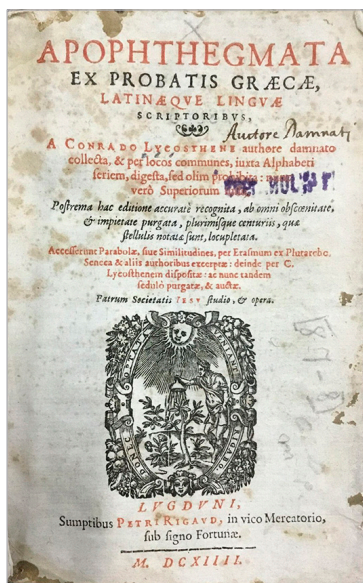 APOPHTHEGMATA
EX PROBATIS GRÆCÆ,
LATINÆQVE LINGVÆ
SCRIPTORIBVS,
Autore Damnati
A CONRADO LYCOSTHENE authore damnato
collecta, & per locos communes, iuxta Alphabeti
seriem, digesta, sed olim prohibita:
verò Superiorum
Postrema hac editione accuratè recognita, ab omni obscœnitate,
& impietate purgata, plurimisque centuriis, quæ
stellulis notatæ sunt, locupletata.
Accesserunt Parabolæ, siue Similitudines, per Erasmum ex Plutarcho,
Seneca & aliis authoribus excerptæ: deinde per C.
Lycosthenem dispositæ: ac nunc tandem
sedulò purgatæ, & auctæ.
Patrum Societatis IESV studio, & opera.
LVGDVNI,
Sumptibus PETRI RIGAVD, in vico Mercatorio,
sub signo Fortunæ.
M. DCXIIII.